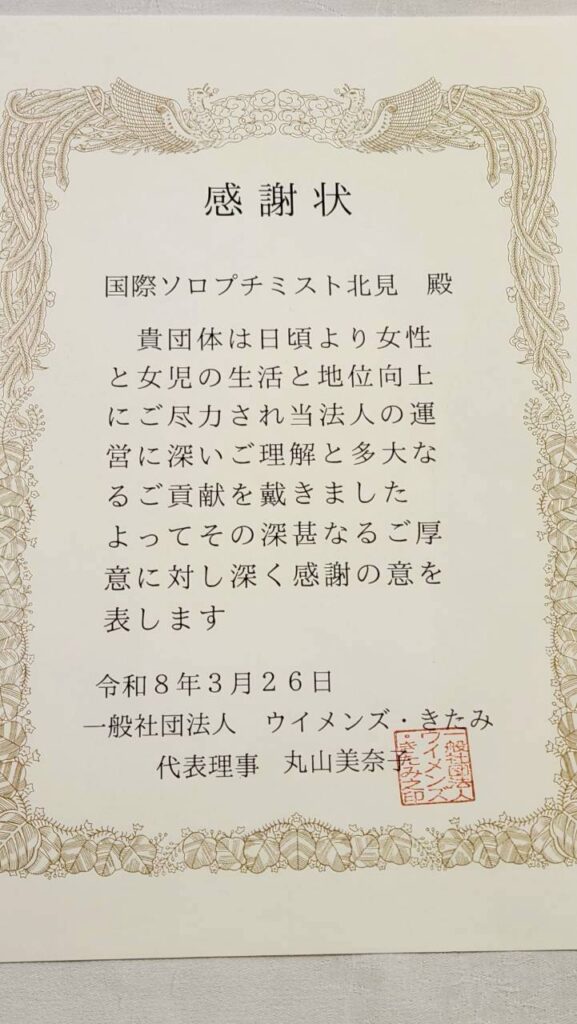 感謝状
国際ソロプチミスト北見　殿
貴団体は日頃より女性
と女児の生活と地位向上
にご尽力され当法人の運
営に深いご理解と多大な
るご貢献を戴きました
よってその深甚なるご厚
意に対し深く感謝の意を
表します
令和８年３月２６日
一般社団法人　ウイメンズ・きたみ
代表理事　丸山美奈子
一般社団法人
ウイメンズ
・きたみ之印